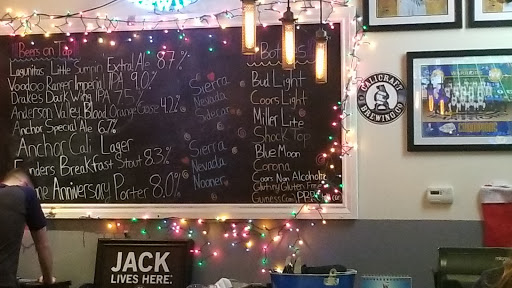 Beers on Tap
Lagunitas Little Sumpin Extra Ale 8.7%
Voodoo Ranger Imperial IPA 9.0%
Drakes Dark Wing IPA 7.5%
Anderson Valley Blood Orange Gose 4.2%
Anchor Special Ale 6.7%
Anchor Cali Lager
Founders Breakfast Stout 8.3%
Anniversary Porter 8.0%
Sierra
Nevada
Sidecar
Sierra
Nevada
Nooner
Bottles
Bud Light
Coors Light
Miller Lite
Shock Top
Blue Moon
Corona
Coors Non Alcoholic
Gluten Free
Guiness PBR
CALICRAFT
BREWING CO
JACK
LIVES HERE.